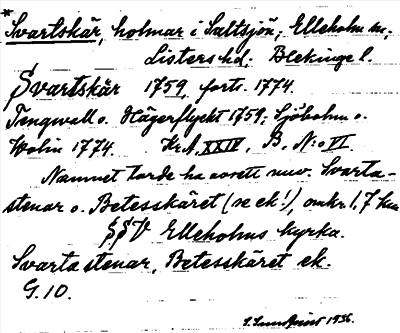 * Svartskär, holmar i Saltsjön, Elleholm sn,
Listers hd, Blekinge l.
Svartskär 1759, fortr. 1774.
Tengwall o. Hägerflyckt 1759, Sjöbohm o.
Wolin 1774. Kr.A. XXIV, B, N:o VI
Namnet torde ha avsett nuv. Svarta-
stenar o. Betesskäret (se ek!), omkr. 1,7 km
SSV Elleholms kyrka.
Svarta stenar, Betesskäret ek.
G.10.
S. Sundquist 1936.